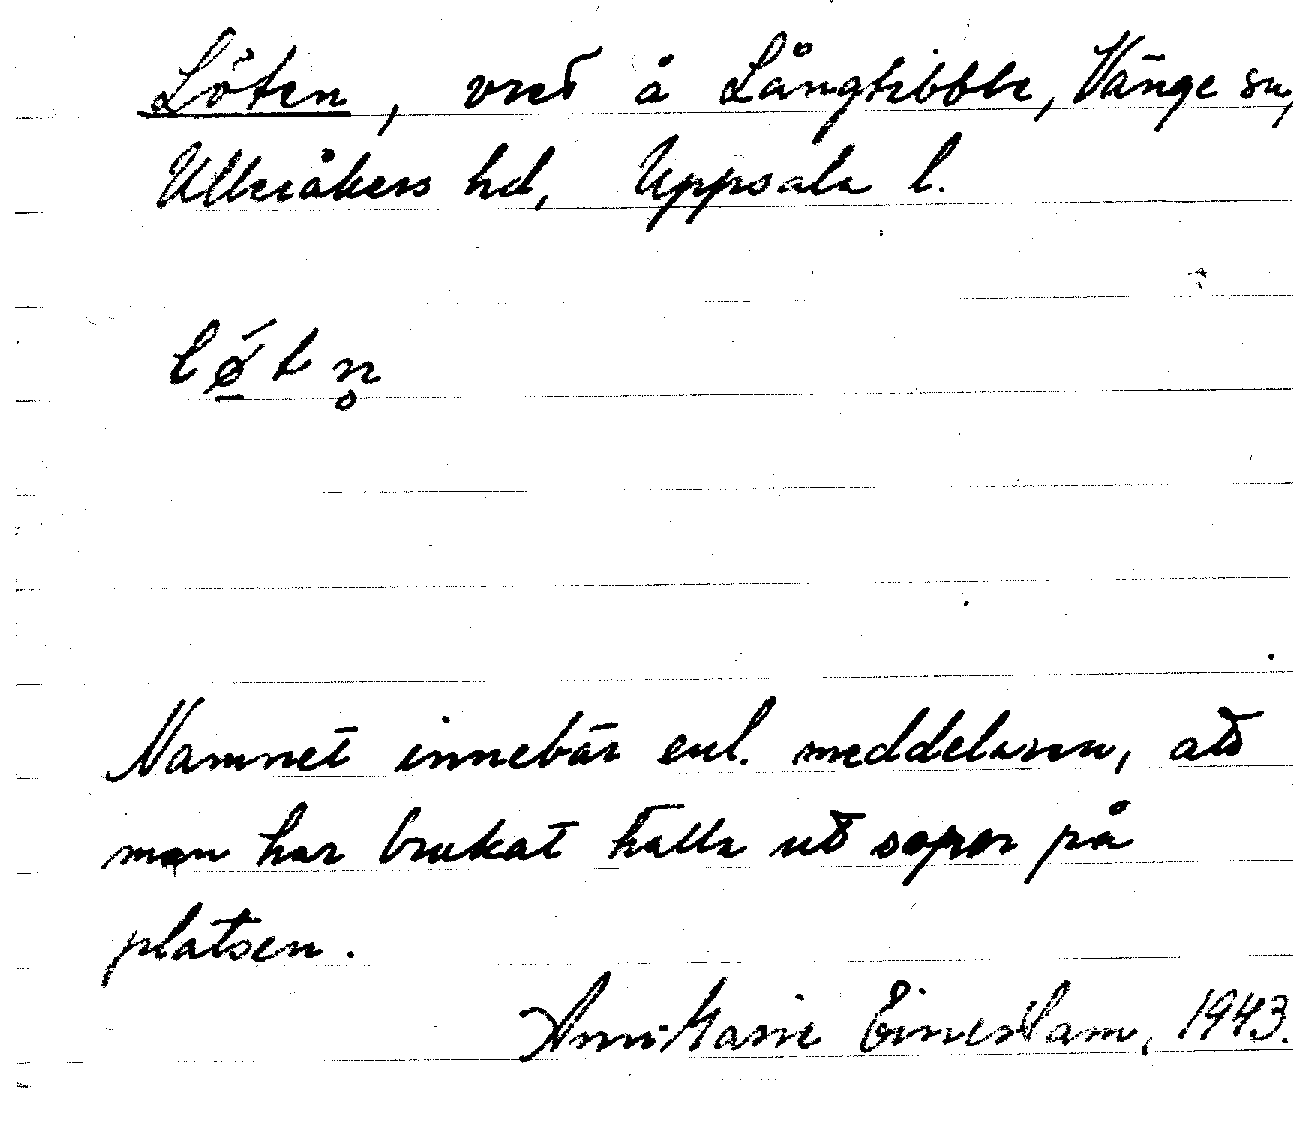 Löten, vret å Långtibble, Vänge sn,
Ulleråkers hd, Uppsala l.
lǿ̱tn̥
Namnet innebär enl. meddelaren, att
man har brukat hälla ut sopor på
platsen.
1943.